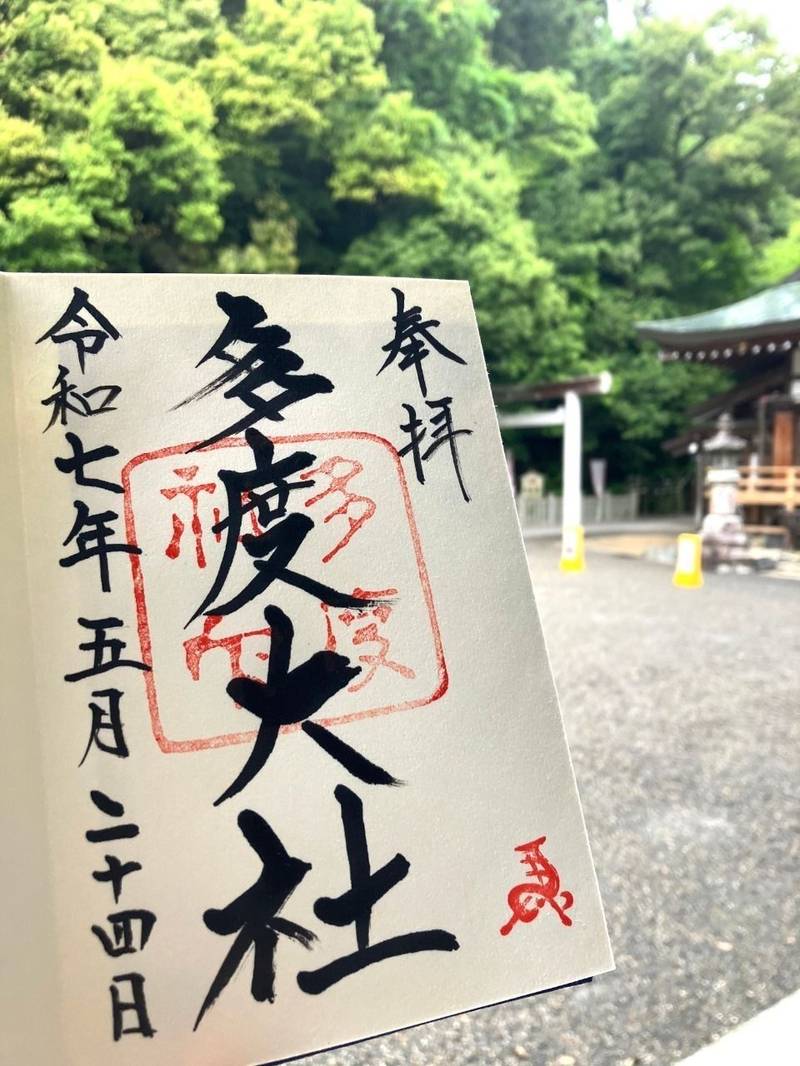 奉拝
多度大社
令和七年五月二十四日
多度
神
馬